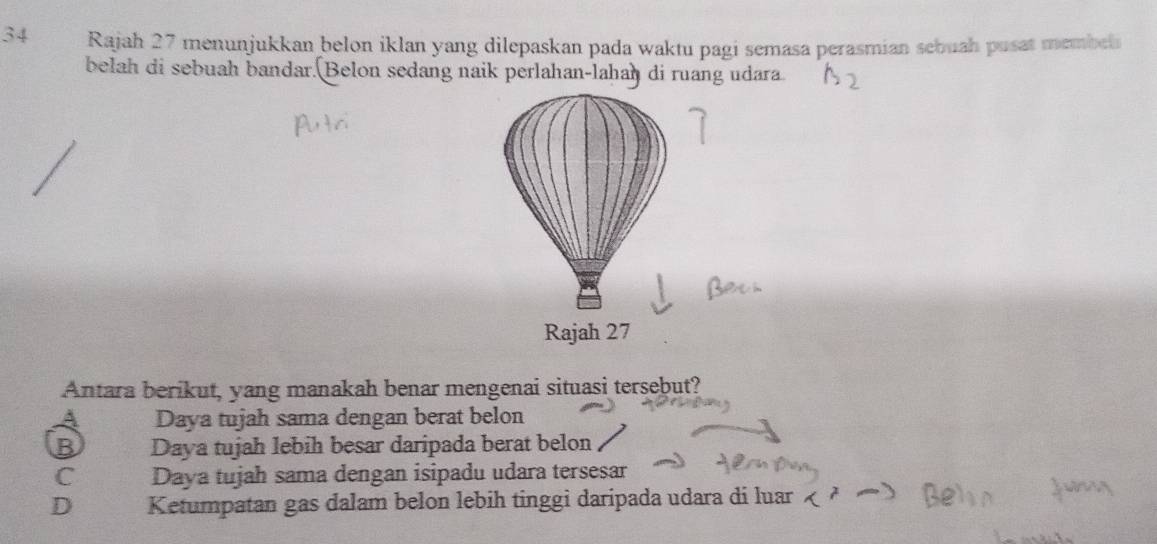 34 Rajah 27 menunjukkan belon iklan yang dilepaskan pada waktu pagi semasa perasmian sebuah pusat membeli
belah di sebuah bandar. (Belon sedang naik perlahan-lahan) di ruang udara.
Rajah 27
Antara berikut, yang manakah benar mengenai situasi tersebut?
A Daya tujah sama dengan berat belon
B Daya tujah lebih besar daripada berat belon
C Daya tujah sama dengan isipadu udara tersesar → terapung
D Ketumpatan gas dalam belon lebih tinggi daripada udara di luar → Belon turun